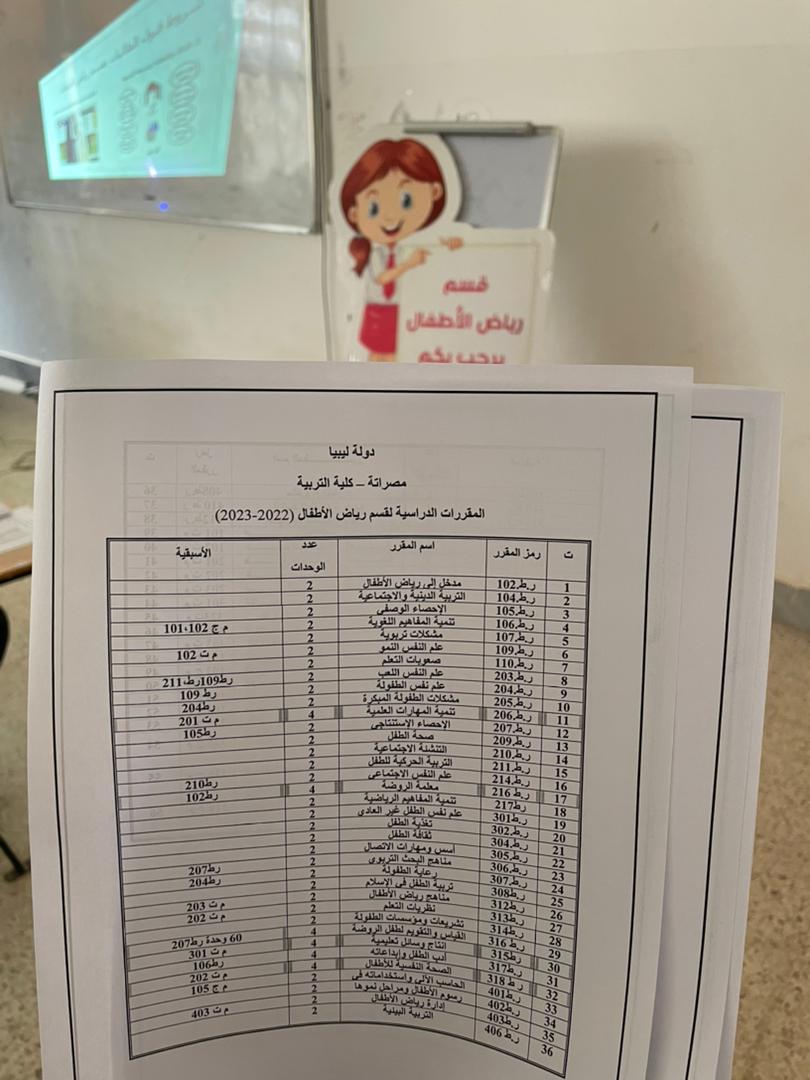 قسم
رياض الأطفال
يرحب بكم
دولة ليبيا
مصراتة – كلية التربية
المقررات الدراسية لقسم رياض الأطفال (2022-2023)
ت رمز المقرر اسم المقرر عدد الوحدات الأسبقية
1 ر.ط.102 مدخل إلى رياض الأطفال 2
2 ر.ط.104 التربية الدينية والاجتماعية 2
3 ر.ط.105 الإحصاء الوصفي 2
4 ر.ط.106 تنمية المفاهيم اللغوية 2 م ج 102،101
5 ر.ط.107 مشكلات تربوية 2
6 ر.ط.109 علم النفس النمو 2 م ت 102
7 ر.ط.110 صعوبات التعلم 2
8 ر.ط.203 علم النفس اللعب 2 رط109رط،211
9 ر.ط.204 علم نفس الطفولة 2 رط 109
10 ر.ط.205 مشكلات الطفولة المبكرة 2 رط204
11 ر.ط.206 تنمية المهارات العلمية 4 م ت 201
12 ر.ط.207 الإحصاء الإستنتاجي 2 رط105
13 ر.ط.209 صحة الطفل 2
14 ر.ط.210 التنشئة الاجتماعية 2
15 ر.ط.211 التربية الحركية للطفل 2
16 ر.ط.214 علم النفس الاجتماعي 2 رط210
17 ر.ط 216 معلمة الروضة 4 رط102
18 ر.ط217 تنمية المفاهيم الرياضية 2
19 ر.ط301 علم نفس الطفل غير العادي 2
20 ر.ط.302 تغذية الطفل 2
21 ر.ط.304 ثقافة الطفل 2
22 ر.ط.305 أسس ومهارات الاتصال 2
23 ر.ط.306 مناهج البحث التربوي 2 رط207
24 ر.ط.307 رعاية الطفولة 2 رط204
25 ر.ط308 تربية الطفل في الإسلام 2
26 ر.ط312 مناهج رياض الأطفال 2 م ت 203
27 ر.ط313 نظريات التعلم 2 م ت 202
28 ر.ط314 تشريعات ومؤسسات الطفولة 2
29 ر.ط 316 القياس والتقويم لطفل الروضة 4 60 وحدة رط207
30 ر.ط315 انتاج وسائل تعليمية 4 م ت 301
31 ر.ط317 أدب الطفل وإبداعاته 4 رط106
32 ر.ط 318 الصحة النفسية للأطفال 4 م ت 202
33 ر.ط401 الحاسب الآلي واستخداماته في 2 م ج 105
34 ر.ط402 رسوم الأطفال ومراحل نموها 2
35 ر.ط403 إدارة رياض الأطفال 2
36 ر.ط 406 التربية البيئية 2 م ت 403